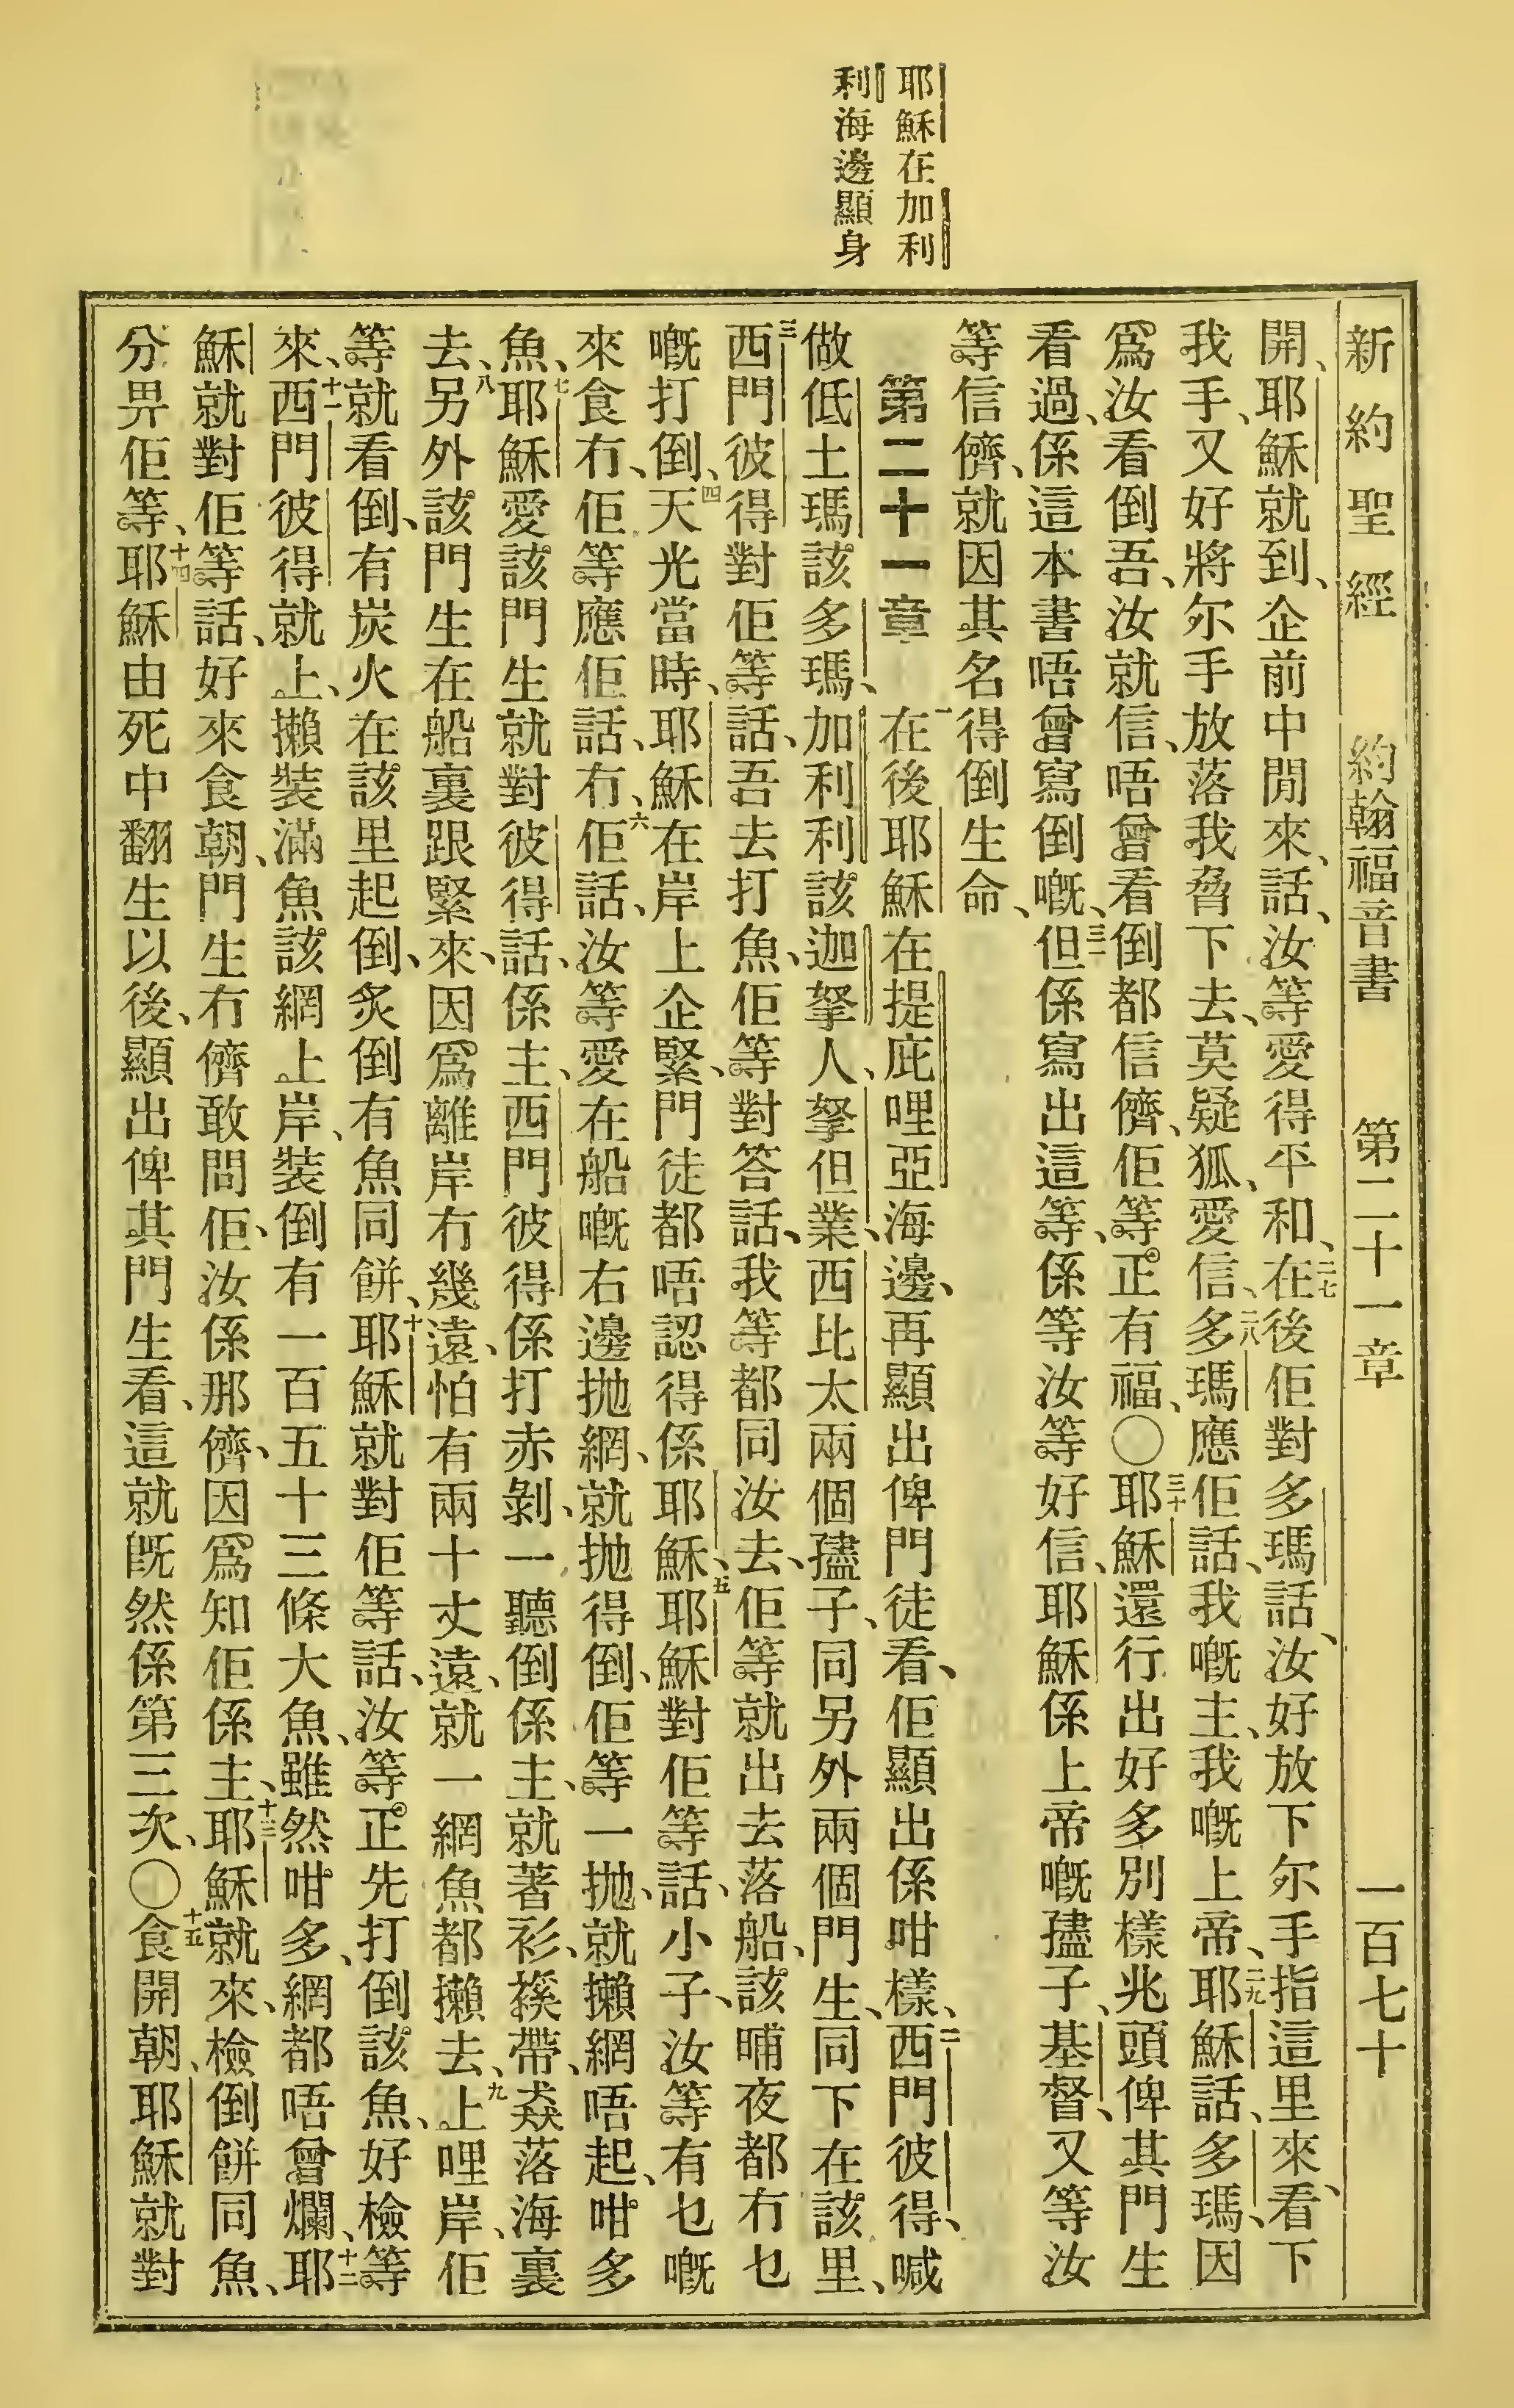 耶穌在加利
利海邊顯身
新約聖經 約翰福音書 第二十一章 一百七十
開、耶穌就到、企前中間來、話、汝等愛得平和、二七在後佢對多瑪話、汝好放下尔手指這里來、看下
我手、又好將尔手放落我脅下去、莫疑狐、愛信、二八多瑪應佢話、我嘅主、我嘅上帝、二九耶穌話、多瑪、因
爲汝看倒吾、汝就信、唔曾看倒都信儕、佢等正有福、〇三十耶穌還行出好多別樣兆頭俾其門生
看過、係這本書唔曾寫倒嘅、三一但係寫出這等、係等汝等好信、耶穌係上帝嘅孻子、基督、又等汝
等信儕、就因其名得倒生命、
第二十一章 一在後耶穌在提庇哩亞海邊、再顯出俾門徒看、佢顯出係咁樣、二西門彼得、喊
做低土瑪該多瑪、加利利該迦拏人、拏但業、西比太兩個孻子、同另外兩個門生、同下在該里、
三西門彼得對佢等話、吾去打魚、佢等對答話、我等都同汝去、佢等就出去落船、該晡夜都冇乜
嘅打倒、四天光當時、耶穌在岸上企緊、門徒都唔認得係耶穌、五耶穌對佢等話、小子、汝等有乜嘅
來食冇、佢等應佢話、冇、六佢話、汝等愛在船嘅右邊拋網、就拋得倒、佢等一拋、就攋網唔起、咁多
魚、七耶穌愛該門生就對彼得話、係主、西門彼得係打赤剝、一聽倒係主、就著衫、䙆帶、猋落海裏
去、八另外該門生在船裏跟緊來、因爲離岸冇幾遠、怕有兩十丈遠、就一網魚都攋去、九上哩岸、佢
等就看倒、有炭火在該里起倒、炙倒有魚同餅、十耶穌就對佢等話、汝等正先打倒該魚、好檢等
來、十一西門彼得就上、攋裝滿魚該網上岸、裝倒有一百五十三條大魚、雖然咁多、網都唔曾爛、十二耶
穌就對佢等話、好來食朝、門生冇儕敢問佢、汝係那儕、因爲知佢係主、十三耶穌就來、檢倒餅同魚、
分畀佢等、十四耶穌由死中翻生以後、顯出俾其門生看、這就旣然係第三次、〇十五食開朝、耶穌就對